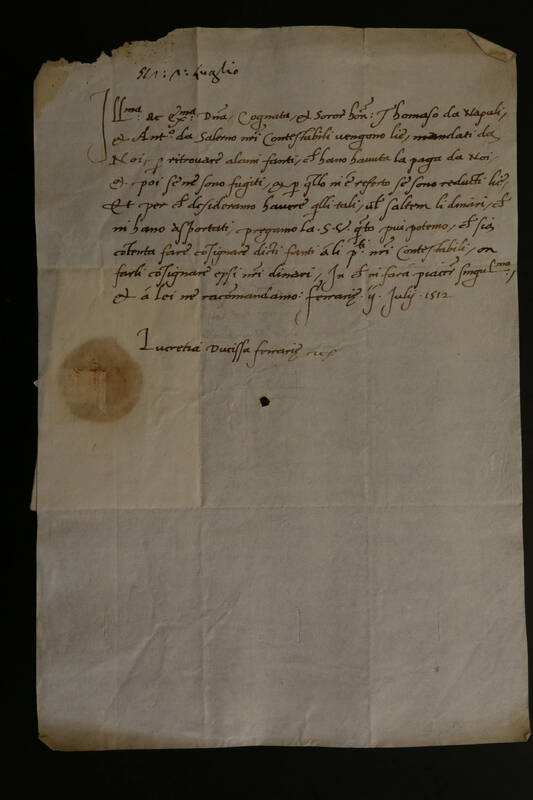 511: 1: Luglio
Ill.ma ac ex.ma Dna, Cognata, et Soror hon: Thomaso da Napuli,
et Ant.o da Salerno nri Contestabili vengono lie, mandati da
Noi, p ritrovare alcuni fanti, ch hano havuta la paga da Noi
et poi se ne sono fugiti, et p qllo ni è referto se sono reducti lie,
Et per ch desideramo havere qlli tali, vl saltem li dinari, ch
ni hano asportati, pregamo la .S.V. qto piu potemo, ch sia
cotenta fare cosignare dicti fanti a li p.ti nri Contestabili, o
farli cosignare epsi nri dinari, In ch ni fara piacer singul.mo,
et a lei ne racomandamo: Ferrarie ij Julij 1512
Lucretia Ducissa ferrarie